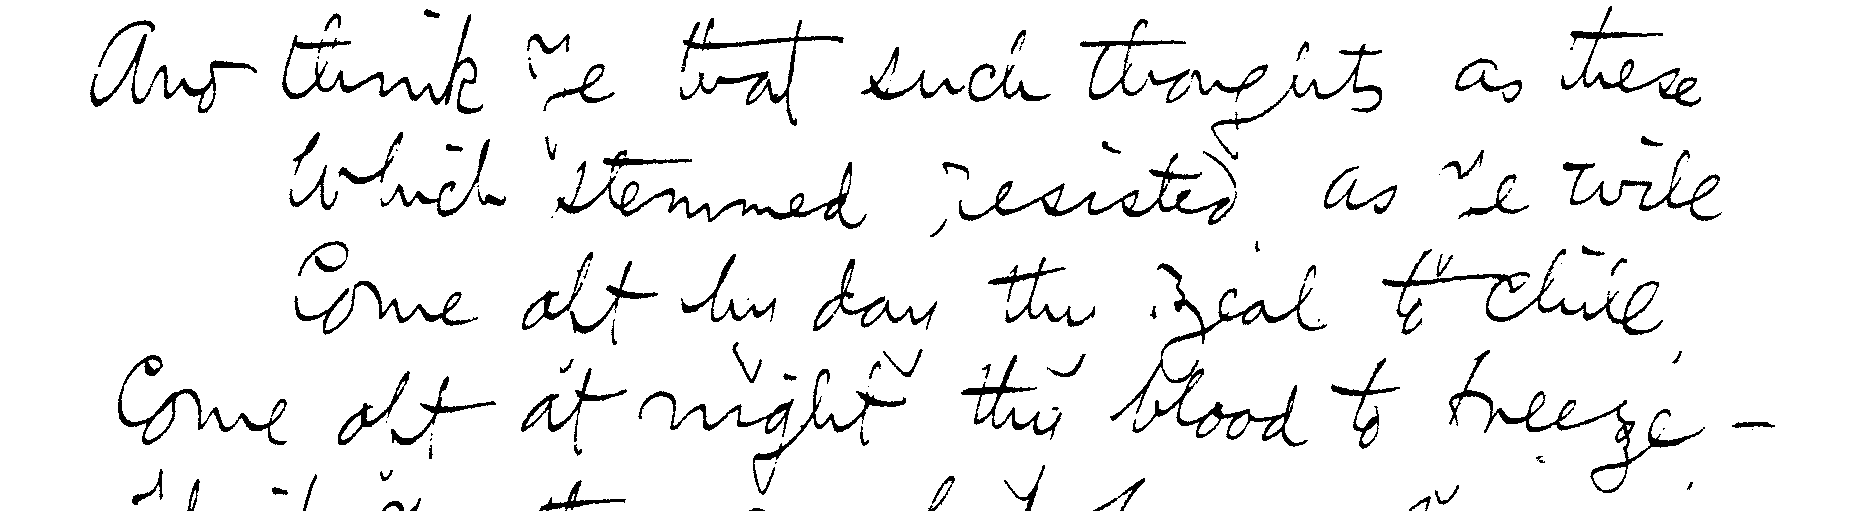 And think ye that such thoughts as these
Which stemmed, resisted, as ye will
Come oft by day the zeal to chill,
Come oft at night the blood to freeze, –